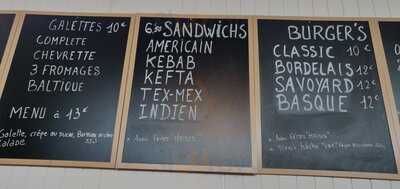 GALETTES 10€
COMPLETE
CHEVRETTE
3 FROMAGES
BALTIQUE
MENU à 13€
Galette, crêpe au sucre,
salade
33cl
6.50 SANDWICHS
AMERICAIN
KEBAB
KEFTA
TEX-MEX
INDIEN
* Avec FRITES "MAISON"
BURGER'S
CLASSIC 10€
BORDELAIS 12€
SAVOYARD 12€
BASQUE 12€
* Avec FRITES "MAISON"
33cl